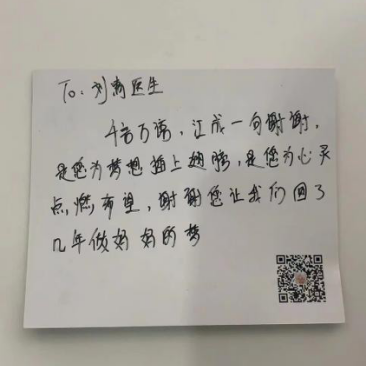 To：刘勇医生
千言万语，汇成一句谢谢，
是您为梦想插上翅膀，是您为心灵
点燃希望，谢谢您让我们圆了
几年做妈妈的梦